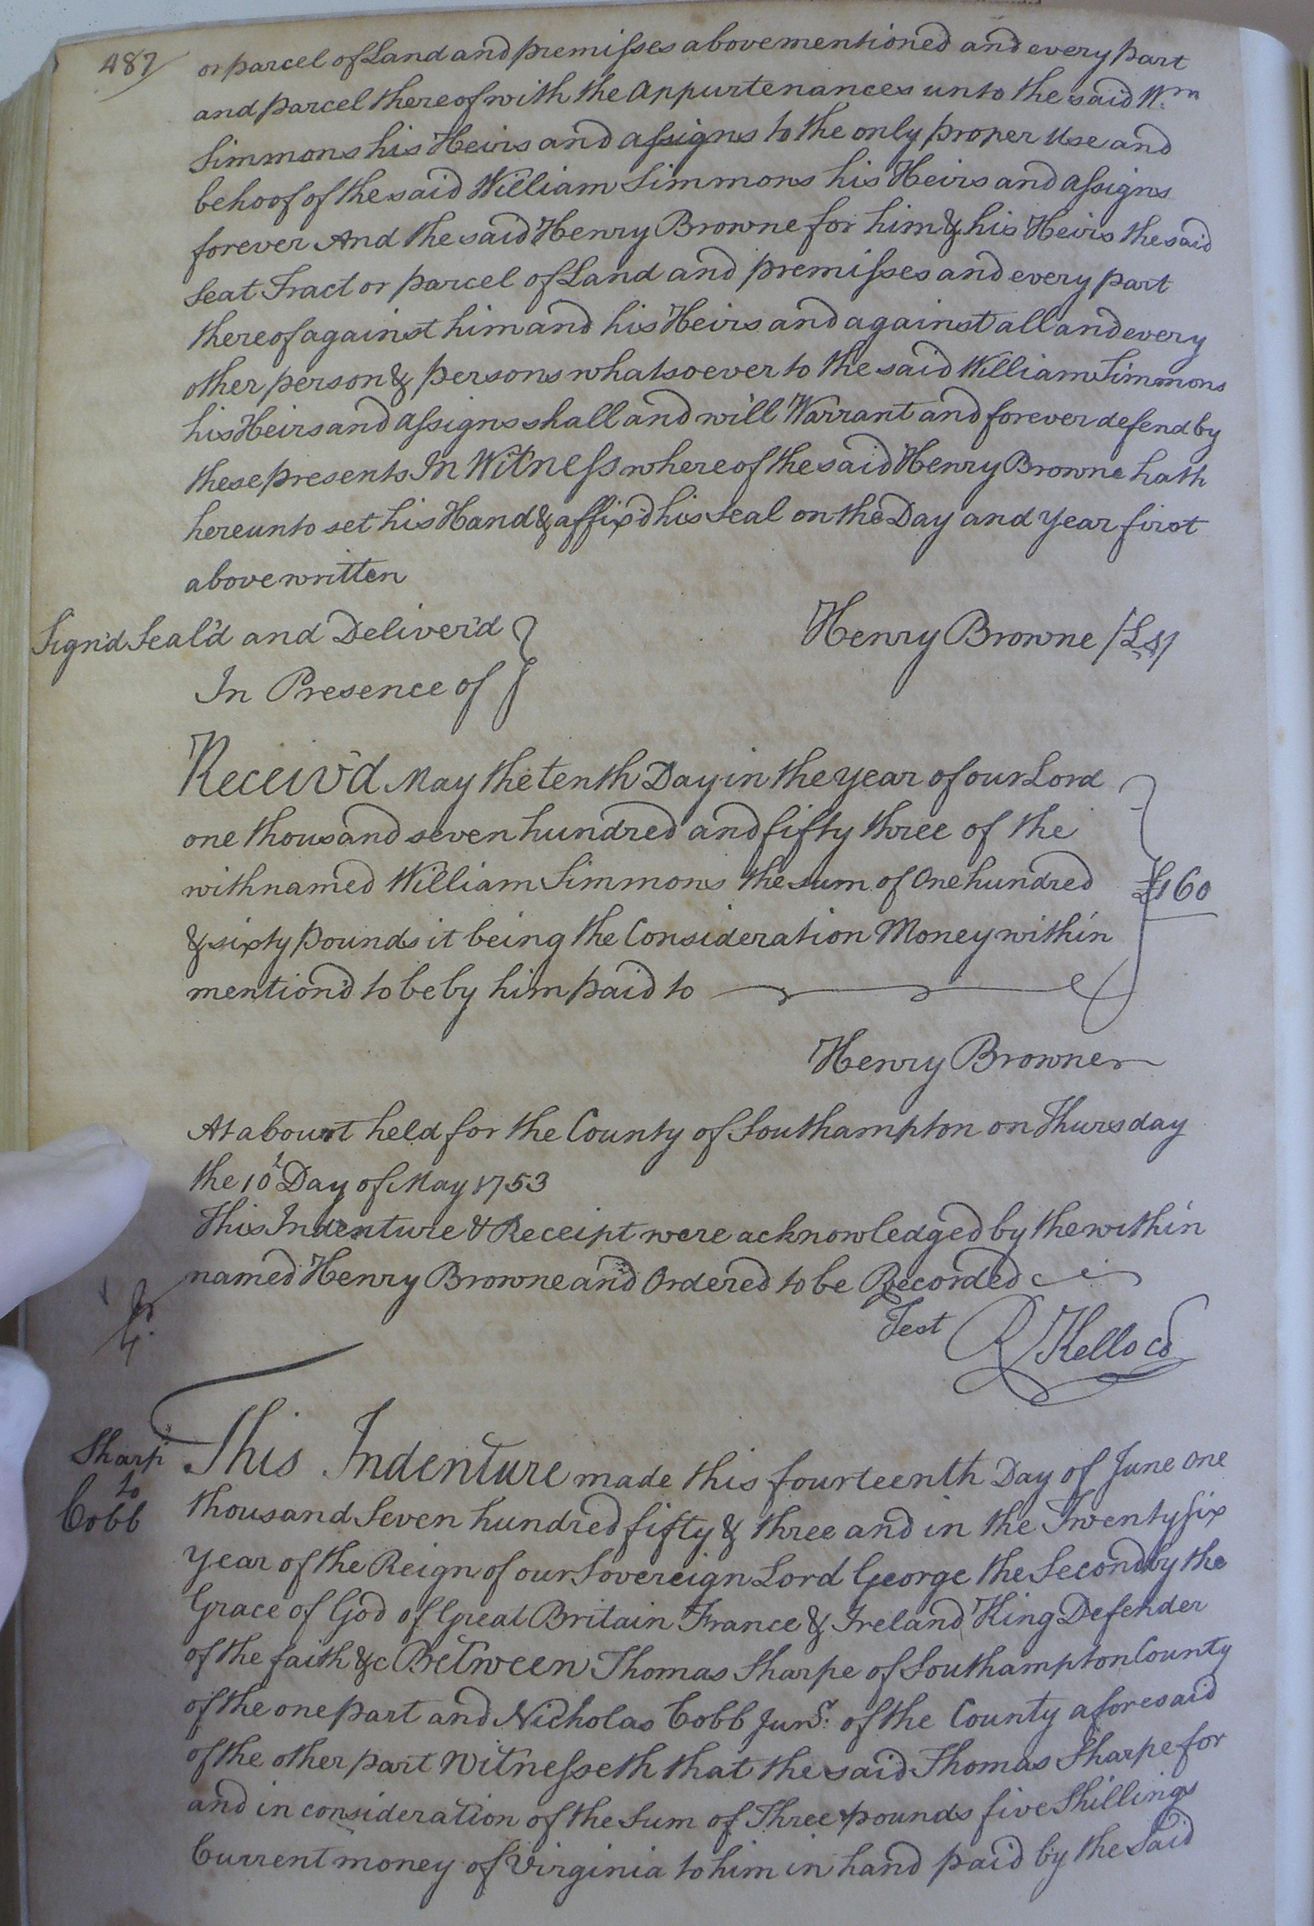 487
or parcel of Land and premisses abovementioned and every part
and parcel thereof with the Appurtenances unto the said Wm
Simmons his Heirs and assigns to the only proper Use and
behoof of the said William Simmons his Heirs and assigns
forever And the said Henry Browne for him & his Heirs the said
Seat Tract or parcel of Land and premisses and every part
thereof against him and his Heirs and against all and every
other person & persons whatsoever to the said William Simmons
his Heirs and assigns shall and will Warrant and forever defend by
these presents In Witness whereof the said Henry Browne hath
hereunto set his Hand & affix'd his Seal on the Day and Year first
above written
Sign'd Seal'd and Deliver'd
Henry Browne (LS)
In Presence of
Receiv'd May the tenth Day in the Year of our Lord
one thousand seven hundred and fifty three of the
withnamed William Simmons the sum of One hundred
£160
& sixty pounds it being the Consideration Money within
mention'd to be by him paid to
Henry Browne
At a Court held for the County of Southampton on Thursday
the 10t Day of May 1753
This Indenture & Receipt were acknowledged by the within
named Henry Browne and Ordered to be Recorded
Test R Kello CC
Sharp
to
Cobb
This Indenture made this fourteenth Day of June one
thousand Seven hundred fifty & three and in the Twenty six
Year of the Reign of our Sovereign Lord George the Second by the
Grace of God of Great Britain France & Ireland King Defender
of the faith &c Between Thomas Sharpe of Southampton County
of the one part and Nicholas Cobb Junr. of the County aforesaid
of the other part Witnesseth that the said Thomas Sharpe for
and in consideration of the Sum of Three pounds five Shillings
Current money of Virginia to him in hand paid by the Said